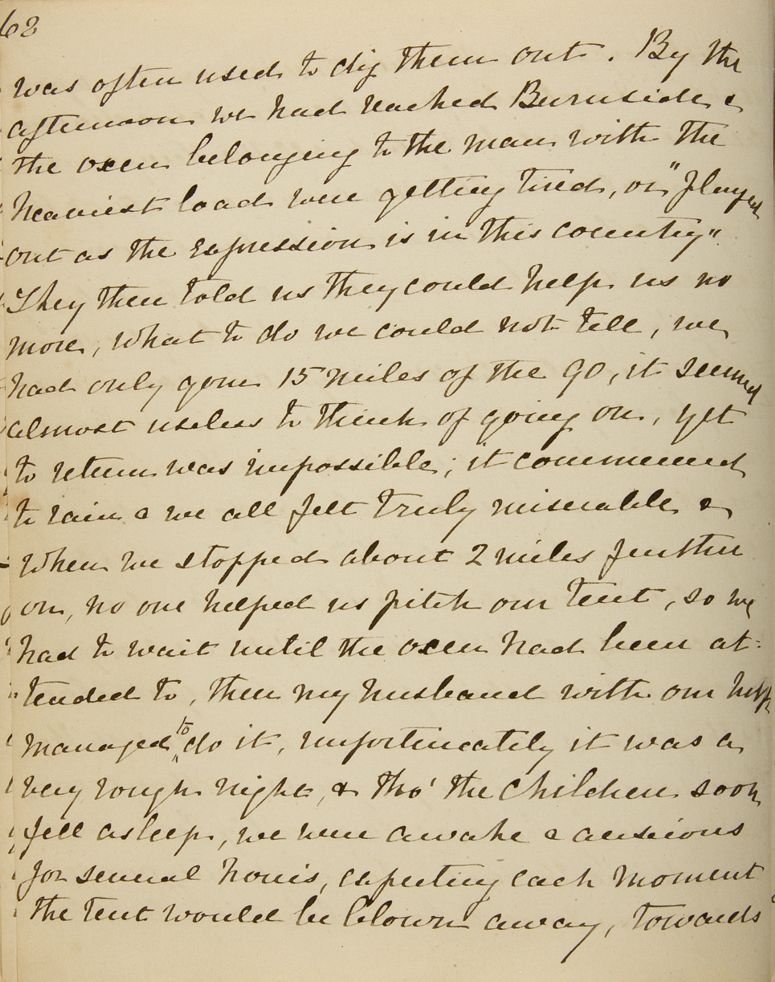 62
was often used to dig them out. By the
afternoon we had reached Burnside &
the oxen belonging to the man with the
heaviest load were getting tired, or "played
out as the expression is in this country".
They then told us they could help us no
more, what to do we could not tell, we
had only gone 15 miles of the 90, it seemed
almost useless to think of going on, yet
to return was impossible; it commenced
to rain & we all felt truly miserable &
when we stopped about 2 miles further
on, no one helped us pitch our tent, so we
had to wait until the oxen had been at=
tended to, then my husband with our help
managed to do it, unfortunately it was a
very rough night, & tho' the children soon
fell asleep, we were awake & anxious
for several hours, expecting each moment
the tent would be blown away, towards